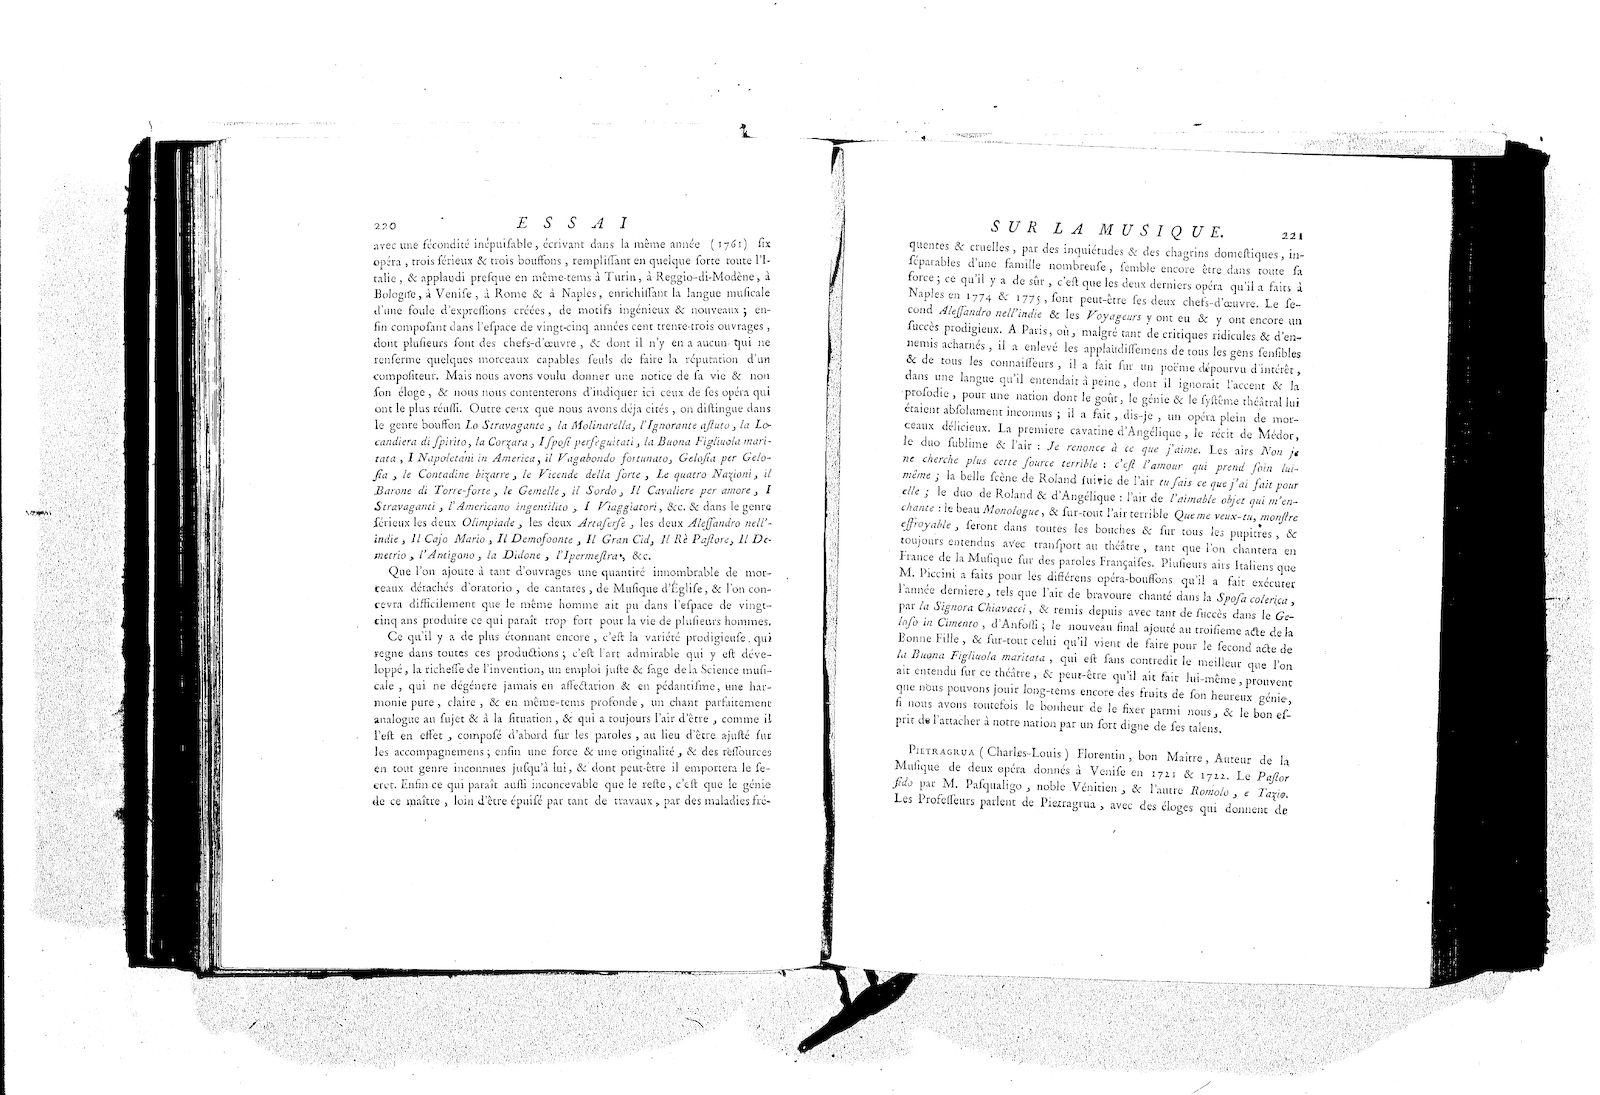 220 ESSAI
avec une fécondité inépuiſable, écrivant dans la même année (1761) ſix
opéra, trois ſérieux & trois bouffons, rempliſſant en quelque ſorte toute l'I-
talie, & applaudi preſque en même-tems à Turin, à Reggio-di-Modène, à
Bologne, à Veniſe, à Rome & à Naples, enrichiſſant la langue muſicale
d'une foule d'expreſſions créées, de motifs ingénieux & nouveaux; en-
fin compoſant dans l'eſpace de vingt-cinq années cent trente-trois ouvrages,
dont pluſieurs ſont des chefs-d'œuvre, & dont il n'y en a aucun qui ne
renferme quelques morceaux capables ſeuls de faire la réputation d'un
compoſiteur. Mais nous avons voulu donner une notice de ſa vie & non
ſon éloge, & nous nous contenterons d'indiquer ici ceux de ſes opéra qui
ont le plus réuſſi. Outre ceux que nous avons déja cités, on diſtingue dans
le genre bouffon Lo Stravagante, la Molinarella, l'Ignorante aſtuto, la Lo-
candiera di ſpirito, la Corzara, I ſpoſi perſeguitati, la Buona Figliuola mari-
tata, I Napoletani in America, il Vagabondo fortunato, Geloſia per Gelo-
ſia, le Contadine bizarre, le Vicende della ſorte, Le quatro Nazioni, il
Barone di Torre-forte, le Gemelle, il Sordo, Il Cavaliere per amore, I
Stravaganti, l'Americano ingentilito, I Viaggiatori, &c. & dans le genre
ſérieux les deux Olimpiade, les deux Artaſerſe, les deux Aleſſandro nell'-
indie, Il Cajo Mario, Il Demofoonte, Il Gran Cid, Il Rè Paſtore, Il De-
metrio, l'Antigono, la Didone, l'Ipermeſtra, &c.
Que l'on ajoute à tant d'ouvrages une quantité innombrable de mor-
ceaux détachés d'oratorio, de cantates, de Muſique d'Égliſe, & l'on con-
cevra difficilement que le même homme ait pu dans l'eſpace de vingt-
cinq ans produire ce qui paraît trop fort pour la vie de pluſieurs hommes.
Ce qu'il y a de plus étonnant encore, c'eſt la variété prodigieuſe qui
regne dans toutes ces productions; c'eſt l'art admirable qui y eſt déve-
loppé, la richeſſe de l'invention, un emploi juſte & ſage de la Science muſi-
cale, qui ne dégénere jamais en affectation & en pédantiſme, une har-
monie pure, claire, & en même-tems profonde, un chant parfaitement
analogue au ſujet & à la ſituation, & qui a toujours l'air d'être, comme il
l'eſt en effet, compoſé d'abord ſur les paroles, au lieu d'être ajuſté ſur
les accompagnemens; enfin une force & une originalité, & des reſſources
en tout genre inconnues juſqu'à lui, & dont peut-être il emportera le ſe-
cret. Enfin ce qui paraît auſſi inconcevable que le reſte, c'eſt que le génie
de ce maître, loin d'être épuiſé par tant de travaux, par des maladies fré-
SUR LA MUSIQUE. 221
quentes & cruelles, par des inquiétudes & des chagrins domeſtiques, in-
ſéparables d'une famille nombreuſe, ſemble encore être dans toute ſa
force; ce qu'il y a de sûr, c'eſt que les deux derniers opéra qu'il a faits à
Naples en 1774 & 1775, ſont peut-être ſes deux chefs-d'œuvre. Le ſe-
cond Aleſſandro nell'indie & les Voyageurs y ont eu & y ont encore un
ſuccès prodigieux. A Paris, où, malgré tant de critiques ridicules & d'en-
nemis acharnés, il a enlevé les applaudiſſemens de tous les gens ſenſibles
& de tous les connaiſſeurs, il a fait ſur un poëme dépourvu d'intérêt,
dans une langue qu'il entendait à peine, dont il ignorait l'accent & la
proſodie, pour une nation dont le goût, le génie & le ſyſtême théâtral lui
étaient abſolument inconnus; il a fait, dis-je, un opéra plein de mor-
ceaux délicieux. La premiere cavatine d'Angélique, le récit de Médor,
le duo ſublime & l'air : Je renonce à ce que j'aime. Les airs Non je
ne cherche plus cette ſource terrible : c'eſt l'amour qui prend ſoin lui-
même; la belle ſcène de Roland ſuivie de l'air tu ſais ce que j'ai fait pour
elle; le duo de Roland & d'Angélique : l'air de l'aimable objet qui m'en-
chante : le beau Monologue, & ſur-tout l'air terrible Que me veux-tu, monſtre
effroyable, ſeront dans toutes les bouches & ſur tous les pupitres, &
toujours entendus avec tranſport au théâtre, tant que l'on chantera en
France de la Muſique ſur des paroles Françaiſes. Pluſieurs airs Italiens que
M. Piccini a faits pour les différens opéra-bouffons qu'il a fait exécuter
l'année derniere, tels que l'air de bravoure chanté dans la Spoſa colerica,
par la Signora Chiavacci, & remis depuis avec tant de ſuccès dans le Ge-
loſo in Cimento, d'Anfoſſi; le nouveau final ajouté au troiſieme acte de la
Bonne Fille, & ſur-tout celui qu'il vient de faire pour le ſecond acte de
la Buona Figliuola maritata, qui eſt ſans contredit le meilleur que l'on
ait entendu ſur ce théâtre, & peut-être qu'il ait fait lui-même, prouvent
que nous pouvons jouir long-tems encore des fruits de ſon heureux génie,
ſi nous avons toutefois le bonheur de le fixer parmi nous, & le bon eſ-
prit de l'attacher à notre nation par un ſort digne de ſes talens.
PIETRAGRUA (Charles-Louis) Florentin, bon Maître, Auteur de la
Muſique de deux opéra donnés à Veniſe en 1721 & 1722. Le Paſtor
fido par M. Paſqualigo, noble Vénitien, & l'autre Romolo, e Tazio.
Les Profeſſeurs parlent de Pietragrua, avec des éloges qui donnent de